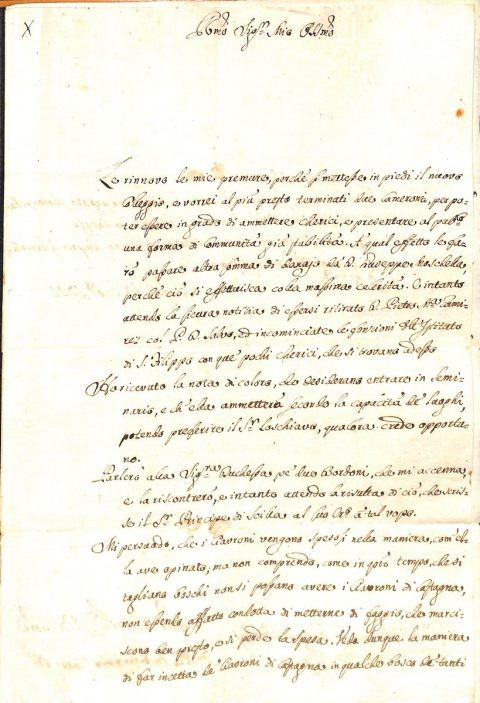 X
Sig.r Mio Oss.mo
Le rinnovo le mie premure, perchè si mettesse in piedi il nuovo
Colleggio, e vorrei al più presto terminati due Cameroni, per po-
ter essere in grado di ammettere Cherici, e presentare al
una forma di Communità già stabilita. A qual effetto le fa-
rò passare altra somma di danajo da D. Giuseppe
perchè ciò si effettuisca colla massima celerità. E intanto
attendo la sicura notizia di essersi ritirato D. Pietro
co.l P. D. Salvo, ed incominciate le funzioni dell'Istituto
di S. Filippo con que' pochi Cherici, che si trovano adesso
Ho ricevuto la nota di coloro, che desiderano entrare in Semi-
nario, e ch'ella ammetterà secondo la capacità de' luoghi,
potendo preferire il S.r Loschiavo, qualora crede opportu-
no.
Parlerò alla Sig.ra Duchessa pe' due Bordoni, che mi accenna,
e la riscontrerò, e intanto attendo la risulta di ciò, che scris-
se il S.r Principe di Scilla al suo a tal uopo.
Mi persuado, che i Travoni vengono spesosi nella maniera, com'el-
la ave opinato, ma non comprendo, come in q.sto tempo, che si
tagliano boschi non si possano avere i Travoni di Castagna,
non essendo affatto condotta di metterne di faggio, che marci-
scono ben presto, e si perde la spesa. Veda dunque la maniera
di far incetta de' Travoni di Castagna in qualche bosco de' tanti